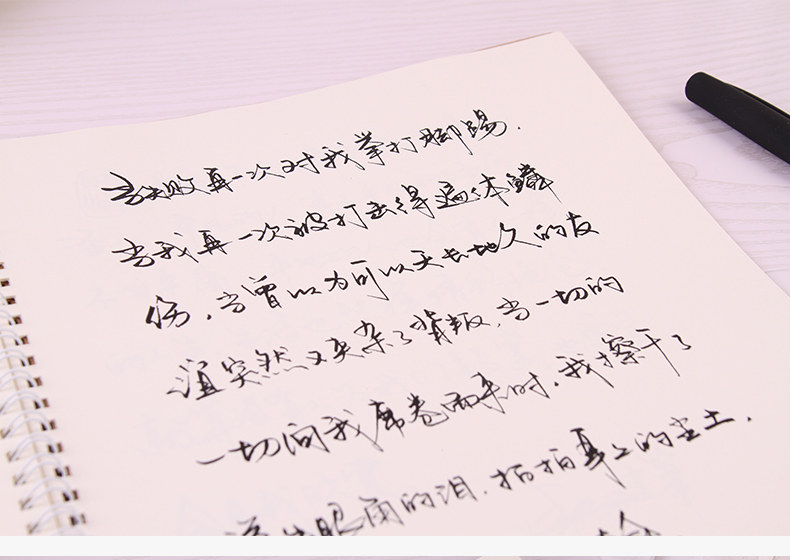 当失败再一次对我拳打脚踢,
当我再一次被打击得遍体鳞
伤,当曾以为可以天长地久的友
谊突然又夹杂了背叛,当一切的
一切向我席卷而来时,我擦干了
眼角的泪,拍拍身上的尘土,